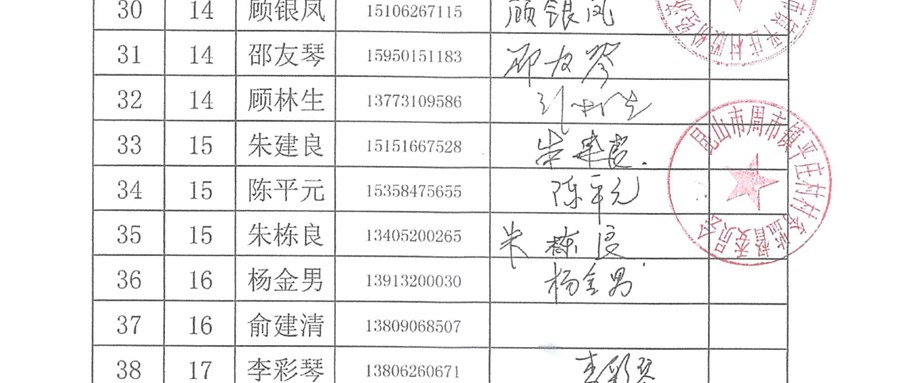 30 14 顾银凤 15106267115 顾银凤
31 14 邵友琴 15950151183 邵友琴
32 14 顾林生 13773109586
33 15 朱建良 15151667528 朱建良
34 15 陈平元 15358475655 陈平元
35 15 朱栋良 13405200265 朱栋良
36 16 杨金男 13913200030 杨金男
37 16 俞建清 13809068507
38 17 李彩琴 13806260671 李彩琴
昆山市周市镇平庄村村务监督委员会